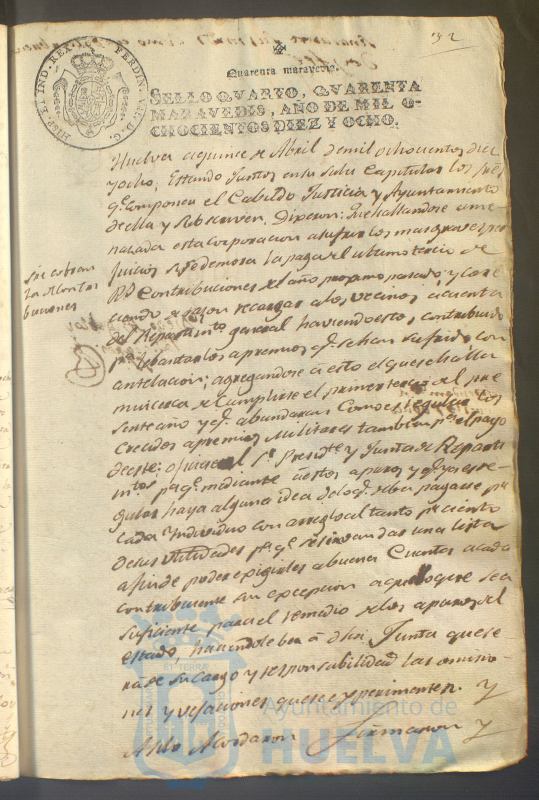 92
HISP. ET IND. REX. FERDIN. VII. D. G.
Quarenta maravedis.
SELLO QVARTO, QVARENTA
MARAVEDIS, AÑO DE MIL O-
CHOCIENTOS DIEZ Y OCHO.
Huelva a quince de Abril de mil ochocientos diez
y ocho, Estando Juntos en su Sala Capitular los Sres
qe. Componen el Cabildo Justicia y Ayuntamiento
de ella y Subscriven, Dixeron: Que hallandose ame
nazada esta Corporacion a sufrir los mas graves per
juicios si se demora la paga del ultimo tercio de
Rs. Contribuciones del año proximo pasado y
ciendo de recargar a los vecinos a cuenta
del Repartimto. general haviendo estos contribuido
pa. lebantar los apremios qe. se han sufrido con
antelacion; agregandose a esto el que se halla
mui cerca de Cumplirse el primer tercio del pre
sente año y qe. abundaran Como es regular los
Crecidos apremios Militares tambien pa. el pago
de este: oficiese al Sr. Presidte. y Junta de Reparti
mtos. pa. qe. mediante a estos apuros y qe. ya es re-
gular haya alguna idea de lo qe. deba pagarse pr.
cada Yndividuo con arreglo al tanto pr. ciento
de sus utilidades pa. qe. se sirvan dar una lista
a fin de poder exigirles a buena Cuenta a cada
contribuiente sin excepcion aquello que sea
suficiente para el remedio de los apuros del
estado, haciendole ver a dha. Junta que se
ra de su cargo y responsabilidad las omisio
nes y vejaciones que se experimenten. Y
Asi lo Acordaron Y firmaron Y
Sre cobran
za de Contri
buciones
Ayuntamiento de
HUELVA